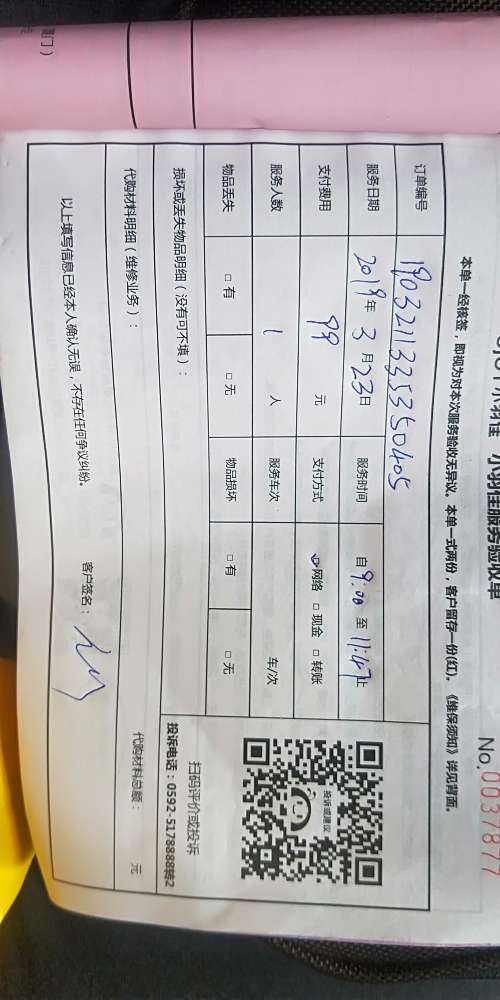 小羽佳服务验收单
No.0037877
本单一经核签，即视为对本次服务验收无异议。本单一式两份，客户留存一份(红)。《维保须知》详见背面。
订单编号 1903211335350405
服务日期 2019年 3 月 23日 服务时间 自 9:00 至 11:47止
支付费用 99 元 支付方式 □网络 □现金 □转账
服务人数 1 人 服务车次 车/次
物品丢失 □有 □无 物品损坏 □有 □无
投诉或建议
扫码评价或投诉
投诉电话：0592-5178888转2
损坏或丢失物品明细（没有可不填）：
代购材料明细（维修业务）： 代购材料总额： 元
以上填写信息已经本人确认无误，不存在任何争议纠纷。
客户签名：